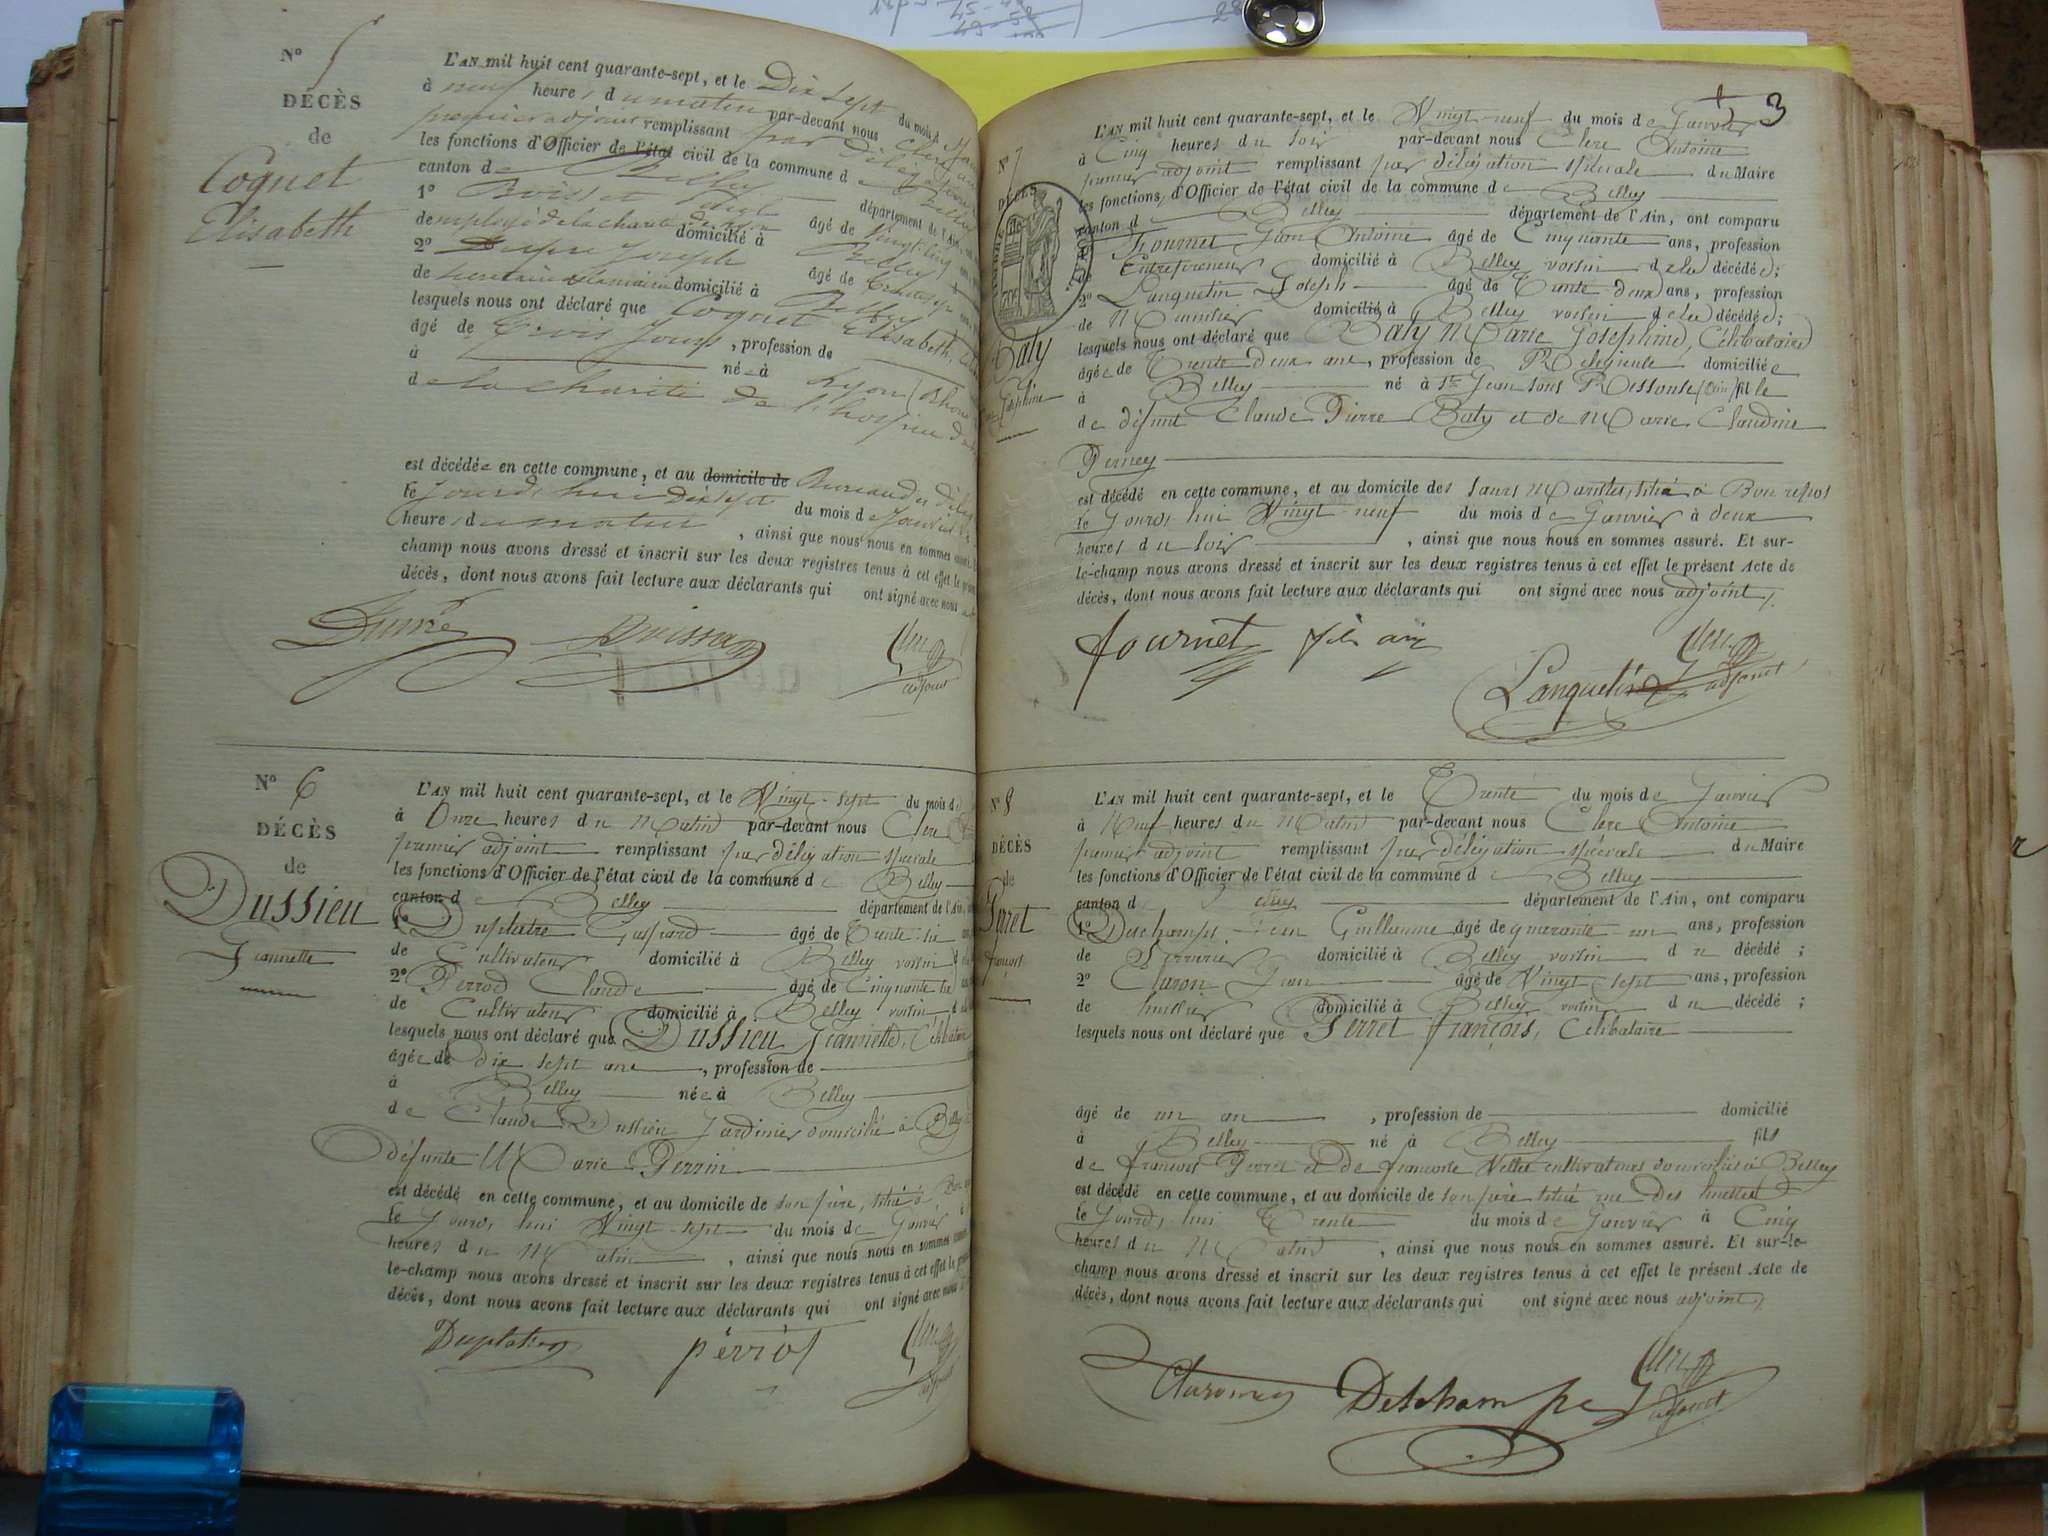 N° 5
DÉCÈS
de
Coquet
Elisabeth
L'AN mil huit cent quarante-sept, et le Dix sept du mois de
à neuf heures du matin par-devant nous Clerc
premier adjoint remplissant par délégation
les fonctions d'Officier de l'état civil de la commune de Belley
canton de Belley département de l'Ain,
1° âgé de vingt cinq
de employé de la charité domicilié à Belley
2° Dupré Joseph âgé de
de domicilié à Belley
lesquels nous ont déclaré que Coquet Elisabeth,
âgé de trois jours, profession de
à née à Lyon (Rhône
de la charité de l'hospice de
est décédée en cette commune, et au domicile de Bureau des
le jourd'hui dix sept du mois de Janvier à
heures du matin, ainsi que nous nous en sommes
champ nous avons dressé et inscrit sur les deux registres tenus à cet effet le
décès, dont nous avons fait lecture aux déclarants qui ont signé avec nous
Dupré
Clerc
adjoint
N° 6
DÉCÈS
de
Dussieu
Jeannette
L'AN mil huit cent quarante-sept, et le Vingt-sept du mois de
à Onze heures du Matin par-devant nous Clerc
premier adjoint remplissant par délégation spéciale
les fonctions d'Officier de l'état civil de la commune de Belley
canton de Belley département de l'Ain,
1° Duplatre Gaspard âgé de Trente six
de Cultivateur domicilié à Belley voisin d
2° Perrod Claude âgé de Cinquante
de Cultivateur domicilié à Belley voisin d
lesquels nous ont déclaré que Dussieu Jeannette, Célibataire
âgée de dix sept ans, profession de
à Belley née à Belley
de Claude Dussieu Jardinier domicilié à Belley
défunte Marie Perrin
est décédé en cette commune, et au domicile de son père, situé à
le Jourd'hui Vingt sept du mois de Janvier à
heures du Matin, ainsi que nous nous en sommes
le-champ nous avons dressé et inscrit sur les deux registres tenus à cet effet le
décès, dont nous avons fait lecture aux déclarants qui ont signé avec nous
perrot
Clerc
adjoint
3
N° 7
DÉCÈS
Baty
Joséphine
L'AN mil huit cent quarante-sept, et le Vingt-neuf du mois de Janvier
à Cinq heures du soir par-devant nous Clerc Antoine
premier adjoint remplissant par délégation spéciale du Maire
les fonctions d'Officier de l'état civil de la commune de Belley
canton d Belley département de l'Ain, ont comparu
1° Fournet Jean Antoine âgé de Cinquante ans, profession
Entrepreneur domicilié à Belley voisin de la décédée;
2° Lanquetin Joseph âgé de Trente deux ans, profession
de domicilié à Belley voisin de la décédée;
lesquels nous ont déclaré que Baty Marie Joséphine, Célibataire
âgée de Trente deux ans, profession de Religieuse domiciliée
à Belley né à St Jean sous Ressouse (ain) fille
de défunt Claude Pierre Baty et de Marie Claudine
Perney
est décédé en cette commune, et au domicile des sœurs Maristes, situé à Bon repos
le Jourd'hui Vingt-neuf du mois de Janvier à deux
heures du soir, ainsi que nous nous en sommes assuré. Et sur-
le-champ nous avons dressé et inscrit sur les deux registres tenus à cet effet le présent Acte de
décès, dont nous avons fait lecture aux déclarants qui ont signé avec nous adjoint.
fournet
Lanquetin
Clerc
adjoint
N° 8
DÉCÈS
de
Perret
françois
L'AN mil huit cent quarante-sept, et le Trente du mois de Janvier
à Neuf heures du Matin par-devant nous Clerc Antoine
premier adjoint remplissant par délégation spéciale du Maire
les fonctions d'Officier de l'état civil de la commune de Belley
canton d Belley département de l'Ain, ont comparu
1° Deschamps Jean Guillaume âgé de quarante-un ans, profession
de Serrurier domicilié à Belley voisin du décédé;
2° Claron Jean âgé de Vingt sept ans, profession
de huissier domicilié à Belley voisin du décédé;
lesquels nous ont déclaré que Perret françois, Célibataire
âgé de un an, profession de domicilié
à Belley né à Belley fils
de françois Perret et de françoise cultivateurs domiciliés à Belley
est décédé en cette commune, et au domicile de son père situé rue des
le Jourd'hui Trente du mois de Janvier à Cinq
heures du Matin, ainsi que nous nous en sommes assuré. Et sur-le-
champ nous avons dressé et inscrit sur les deux registres tenus à cet effet le présent Acte de
décès, dont nous avons fait lecture aux déclarants qui ont signé avec nous adjoint
Deschamps
Clerc
adjoint